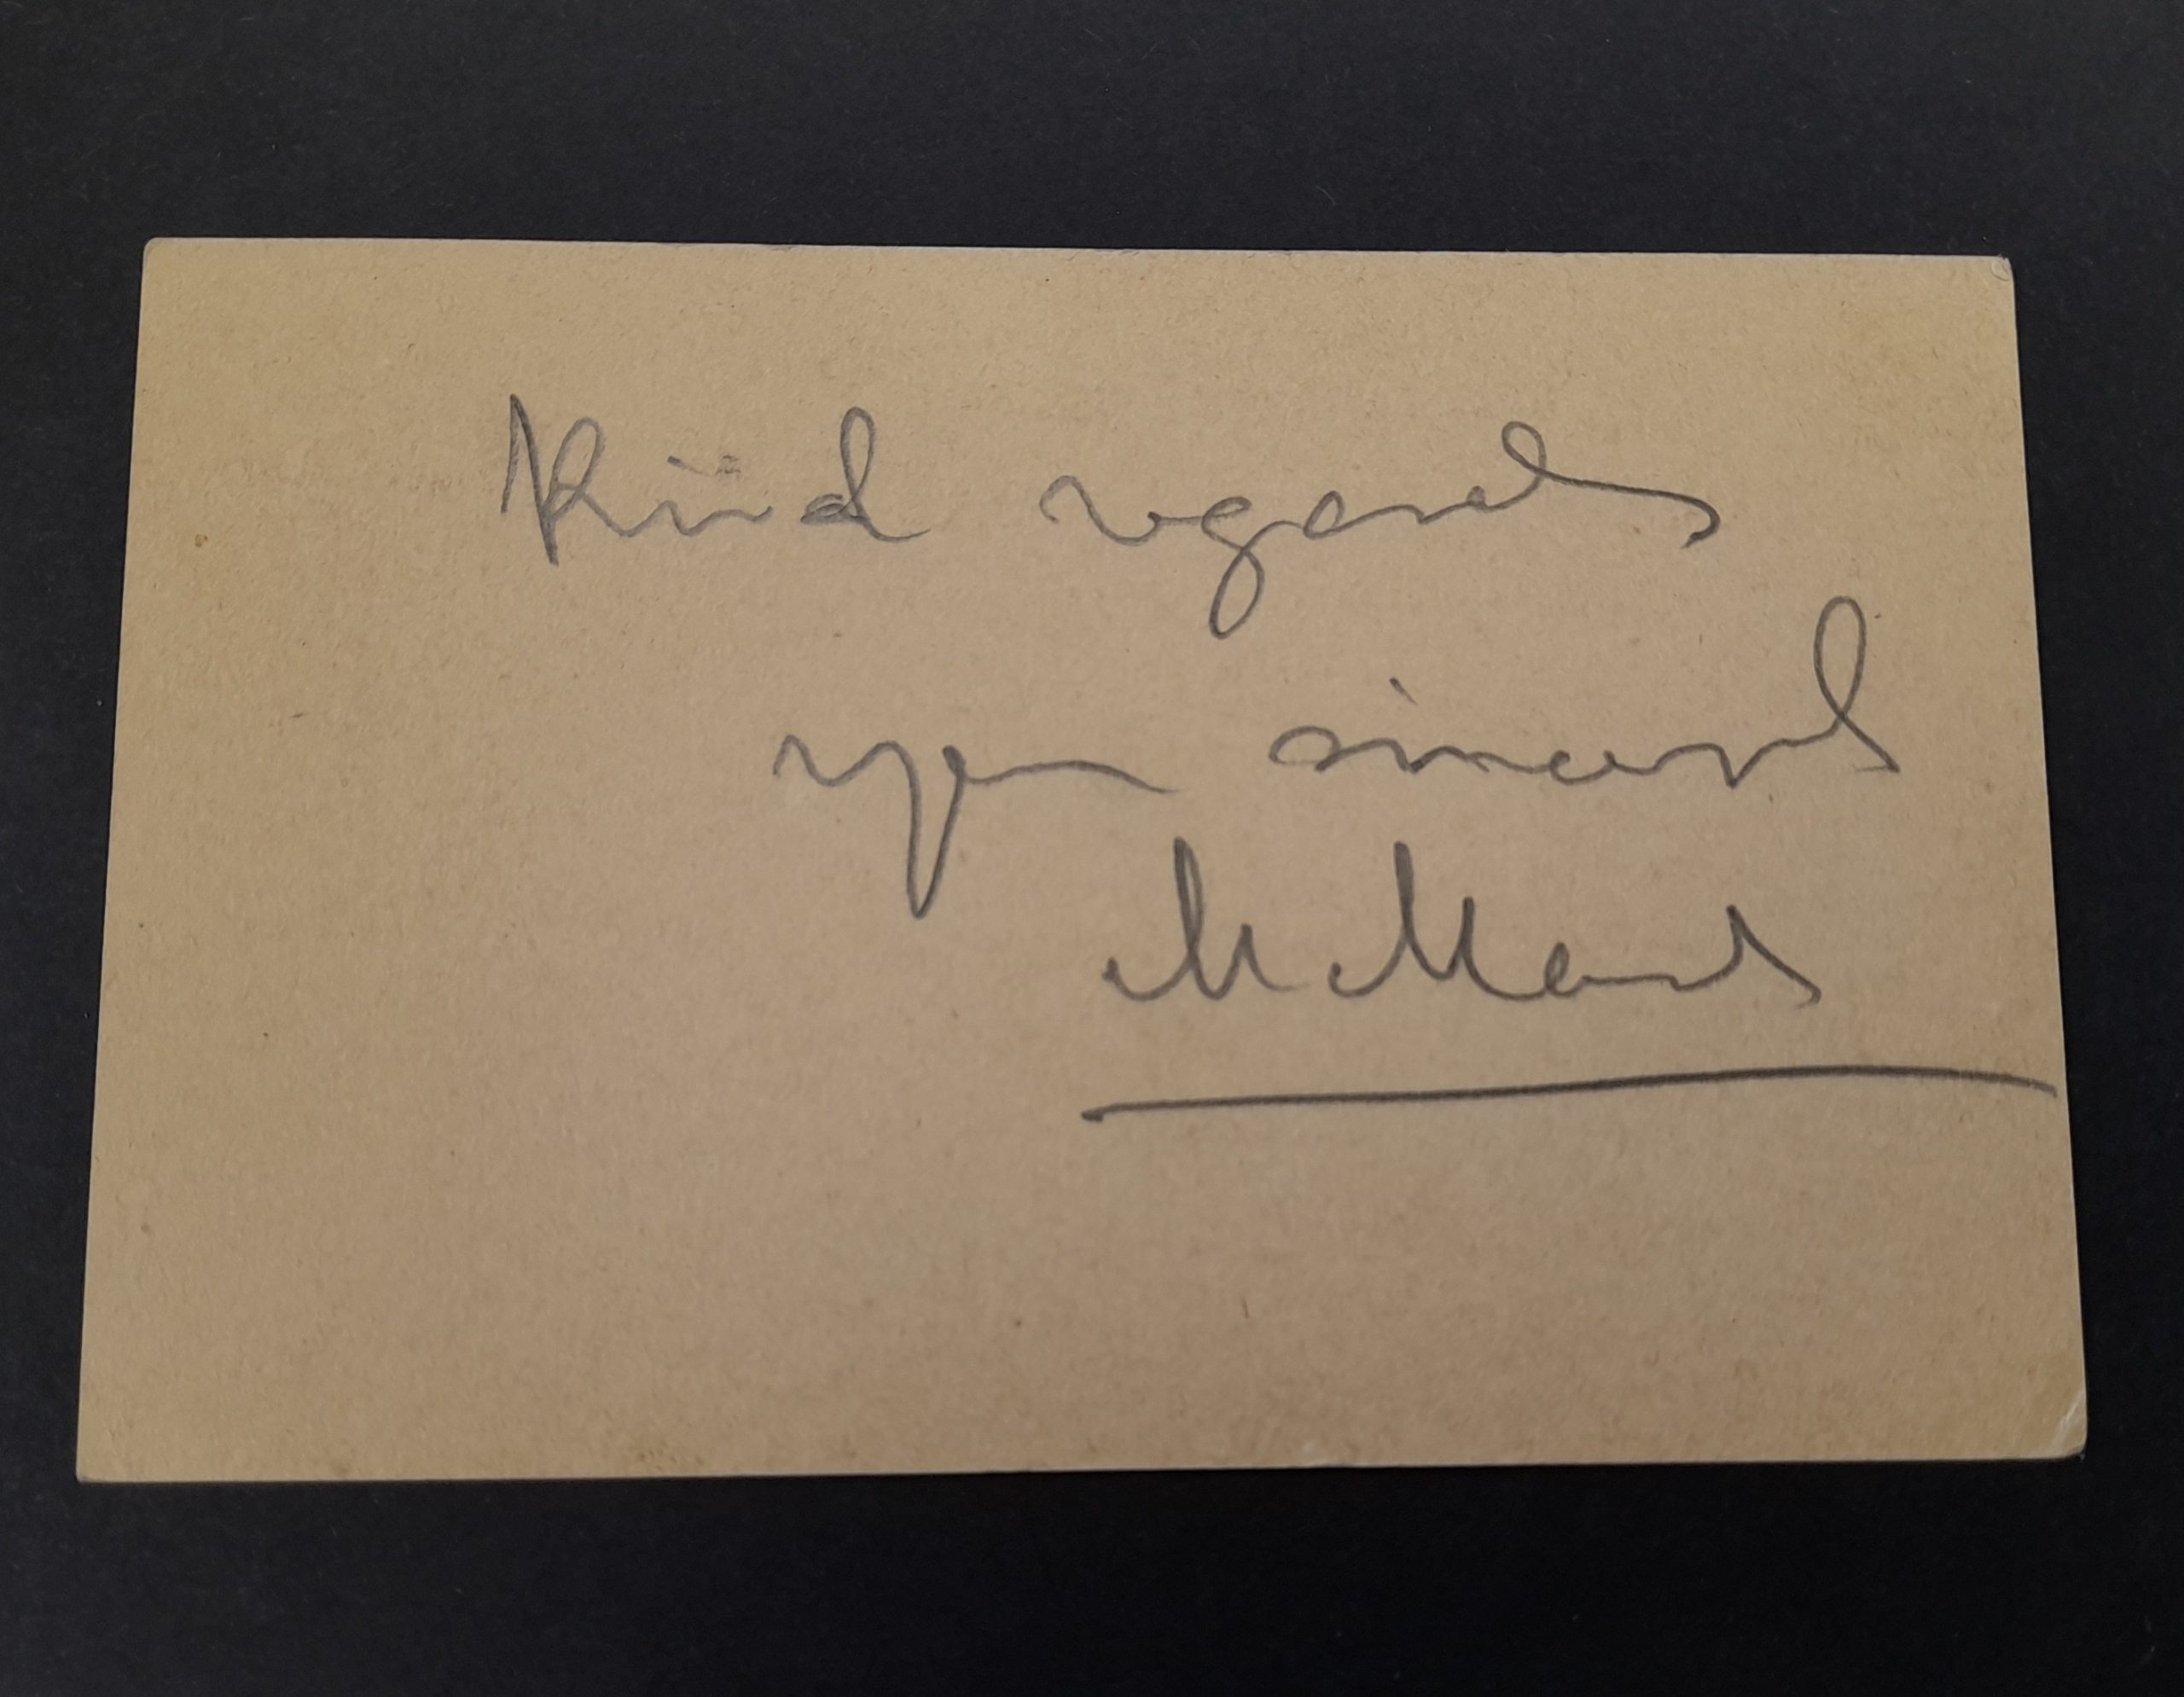 Kind regards
yours sincerely